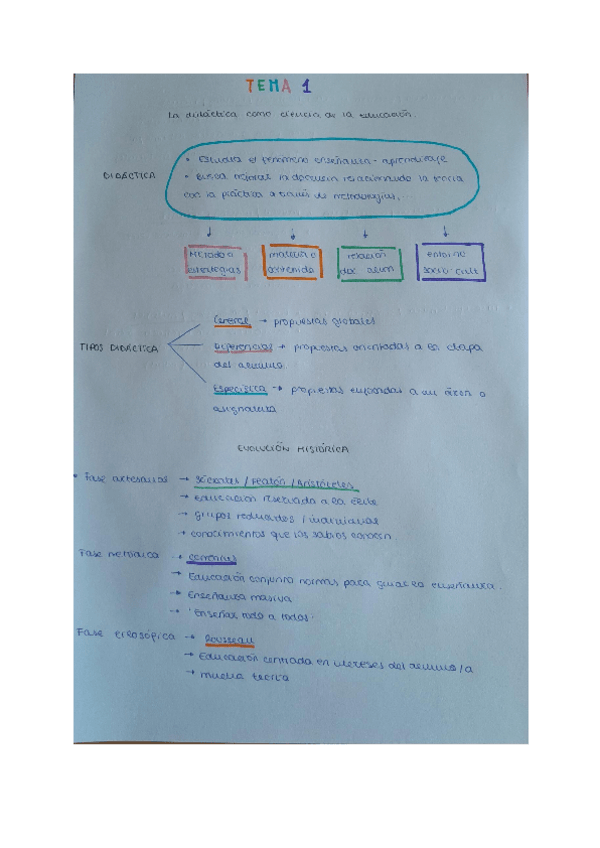 TEMA 1
La didáctica como ciencia de la educación.
DIDÁCTICA
• Estudia el fenómeno enseñanza - aprendizaje
• Busca mejorar la docencia relacionando la teoría
con la práctica a través de metodologías, ...
Métodos
estrategias
materia o
contenido
relación
doc. alum
entorno
socio cult
TIPOS DIDÁCTICA
General → propuestas globales
Diferencial → propuestas orientadas a la etapa
del alumno
Específica → propuestas enfocadas a un área o
asignatura
EVOLUCIÓN HISTÓRICA
• Fase artesanal → Sócrates / Platón / Aristóteles
→ Educación reservada a la élite
→ grupos reducidos / individuales
→ conocimientos que los sabios conocen.
Fase metódica → Comenius
→ Educación conjunto normas para guiar la enseñanza.
→ Enseñanza masiva
→ "Enseñar todo a todos"
Fase filosófica → Rousseau
→ Educación centrada en intereses del alumno/a
→ mucha teoría